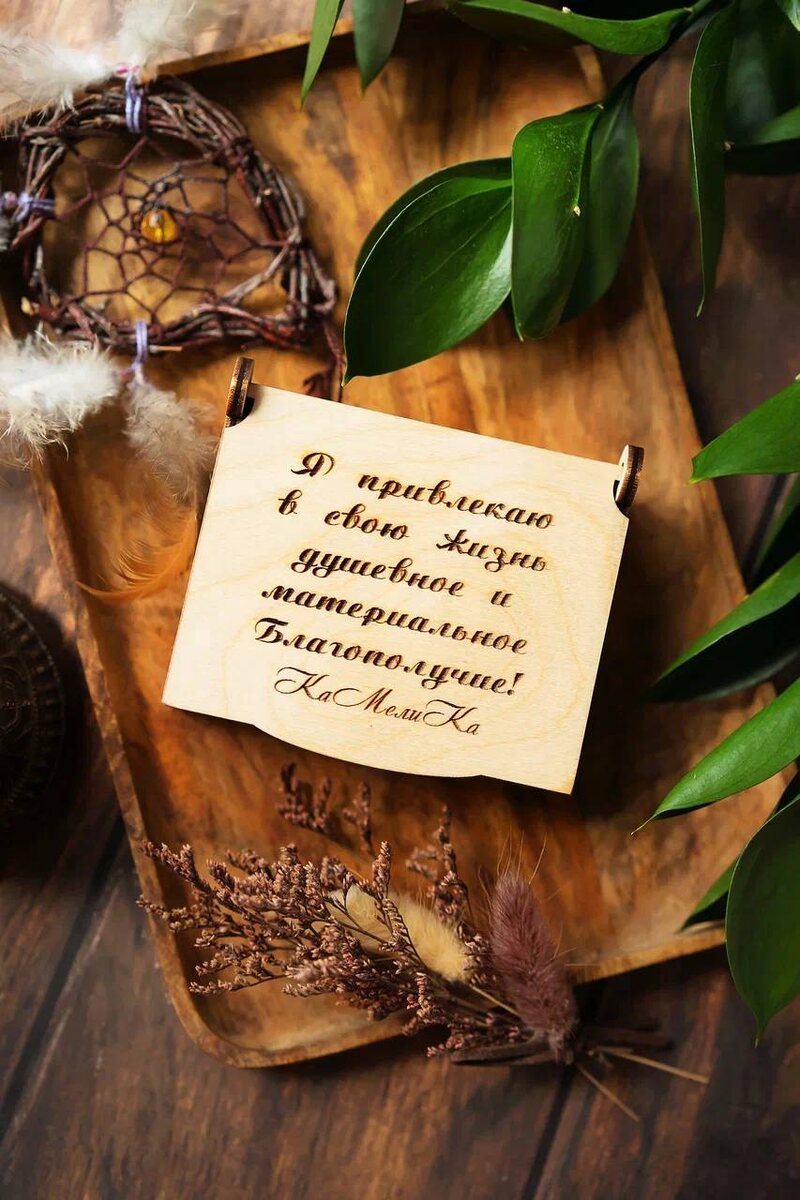 Я привлекаю
в свою жизнь
душевное и
материальное
Благополучие!
КаМелиКа